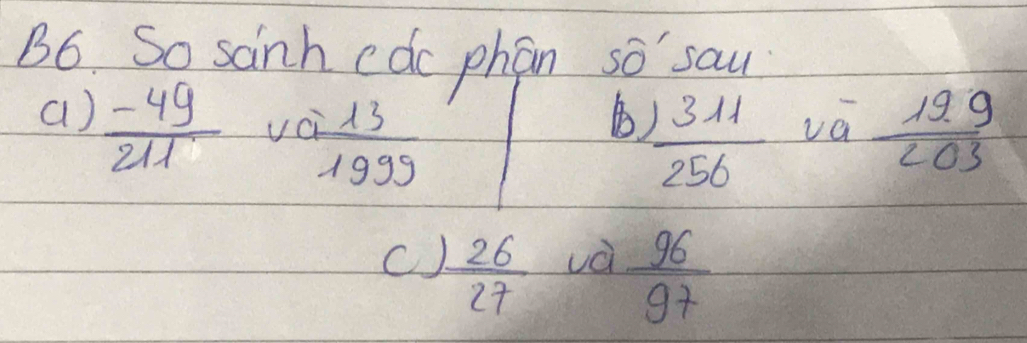 B6. So sánh các phân số sau:
a) -49/211 và 13/1999 b) 311/256 và 199/203
c) 26/27 và 96/97